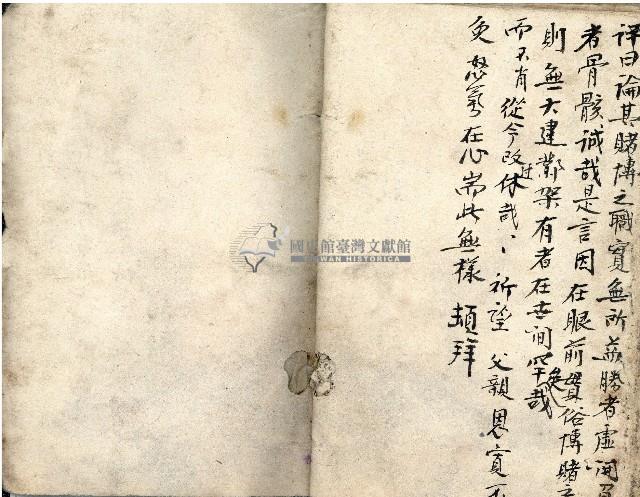 評曰論其賭博之職實無所益勝者虛鬧
者骨骸誠哉是言因在眼前習俗博賭
則無大建鄰架有者在世间罕哉
而不肖從今改过休哉祈望父親恩寬不
免怒氣在心耑此無樣頓拜
國史館臺灣文獻館
TAIWAN HISTORICA